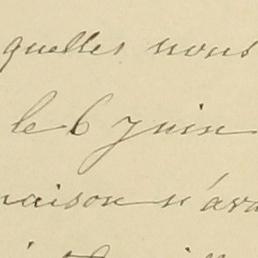 quelles nous
le 6 juin
maison n'av